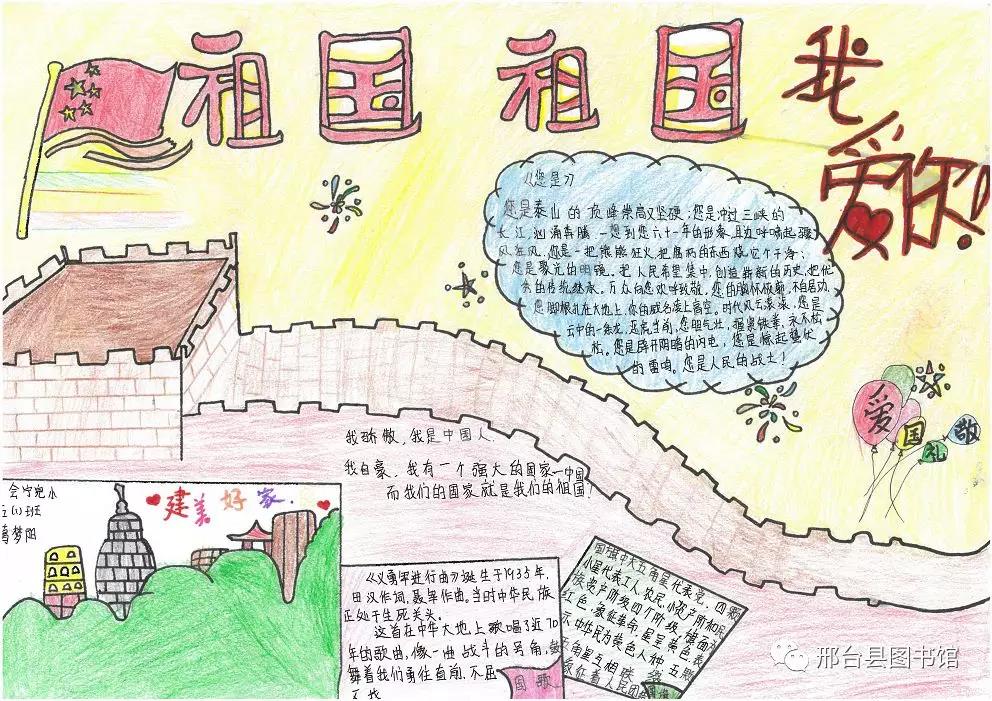 祖国 祖国
我
爱你!
《您是》
您是泰山的顶峰崇高又坚硬;您是冲过三峡的
长江,汹涌奔腾 一想到您六十一年的形象,耳边呼啸起骤
风狂风.您是一把熊熊烈火,把腐朽的东西烧它个干净;
您是聚光的明镜,把人民希望集中,创造崭新的历史,把优
秀的传统继承,万众向您欢呼致敬,您的胸怀依旧,不自居功,
您脚根扎在大地上,你的威名凌上高空。时代风云滚滚,您是
云中的一条龙,恶虎当前,您胆气壮,握紧铁拳,永不松
松。您是辟开阴暗的闪电;您是惊起蛰伏
的雷鸣。您是人民的战士!
爱
国
礼
敬
我骄傲,我是中国人.
我自豪、我有一个强大的国家一中国
而我们的国家就是我们的祖国!
会宁宛小
五(1)班
梦阳
建美好家.
《义勇军进行曲》诞生于1935年,
田汉作词,聂耳作曲。当时中华民族
正处于生死关头。
这首在中华大地上歌唱了近70
年的歌曲,像一曲战斗的号角,鼓
舞着我们勇往直前,不屈
不挠
国歌
国旗中大五角星代表党,四颗
小星代表工人,农民,小资产阶和民
族资产阶级四个阶级,旗面为
红色,象征革命,星呈黄色表
示中华民为黄色人种 五颗
五角星互相联络
象征着人民团
国旗
邢台县图书馆